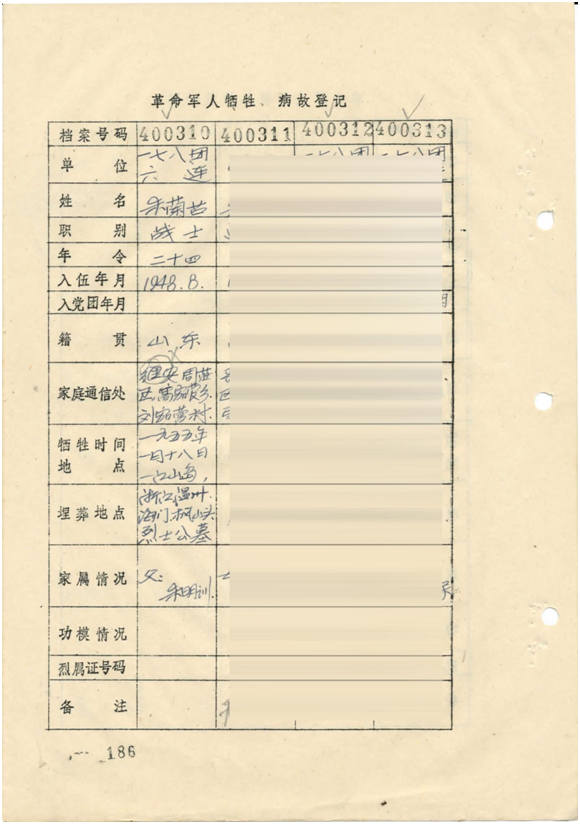 革命军人牺牲、病故登记
档案号码 400310 400311 400312 400313
单位 一七八团 一七八团 一七八团
六连
姓名 朱兰
职别 战士
年令 二十四
入伍年月 1948.8.
入党团年月
籍贯 山东
家庭通信处
刘 村
牺牲时间 一九五五年
地点 一月十八日
一江山岛,
埋葬地点 浙江温州
海门枫山头
烈士公墓
家属情况 父:
朱明训.
功模情况
烈属证号码
备注
186